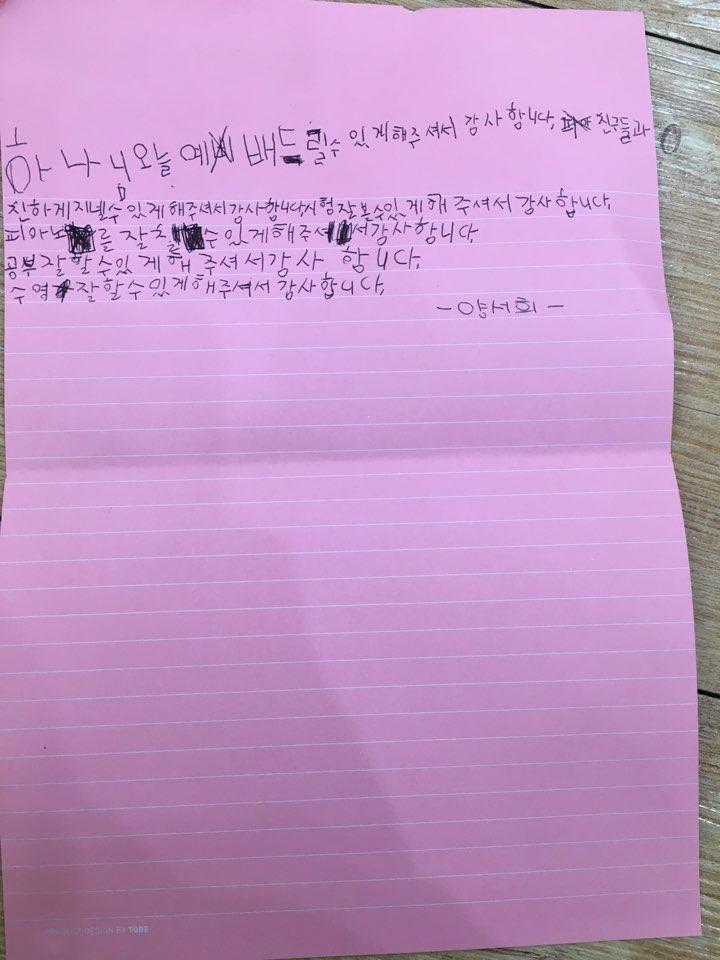 하나님 오늘 예배드릴수 있게해주셔서 감사합니다, 친구들과
친하게지넬수있게해주셔서감사합니다,시험잘본수있게해주셔서감사합니다,
피아노를 잘칠수있게해주셔서감사합니다,
공부잘할수있게해주셔서감사합니다,
수영잘할수있게해주셔서감사합니다,
-양서희-
PRODUCT DESIGN BY TOBE